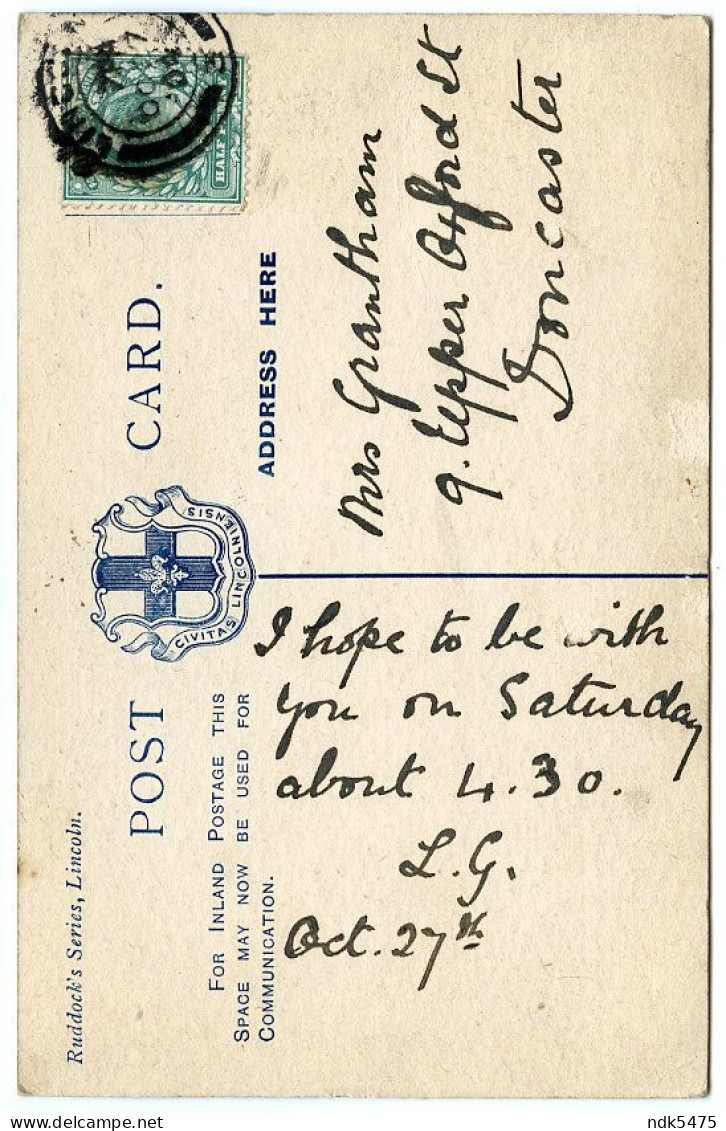 Ruddock's Series, Lincoln.
POST CARD.
CIVITAS LINCOLNIENSIS
FOR INLAND POSTAGE THIS
SPACE MAY NOW BE USED FOR
COMMUNICATION.
ADDRESS HERE
HALF
I hope to be with
you on Saturday
about 4.30.
L.G.
Oct. 27th
Mrs Grantham
9. Upper Oxford St
Doncaster
ndk5475